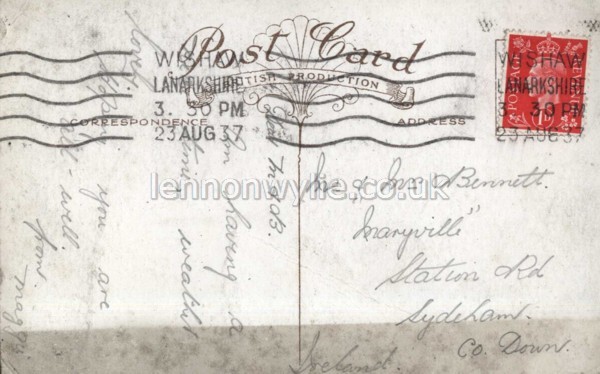 Post Card
BRITISH PRODUCTION
CORRESPONDENCE
ADDRESS
WISHAW
LANARKSHIRE
3. 30 PM
23 AUG 37
WISHAW
LANARKSHIRE
3. 30 PM
23 AUG 37
Mr & Mrs Bennett.
"Maryville"
Station Rd
Sydeham.
Co. Down.
Ireland.
Dear Mr & Mrs B.
Am having a
time, weather
you are
all well.
from
lennonwylie.co.uk